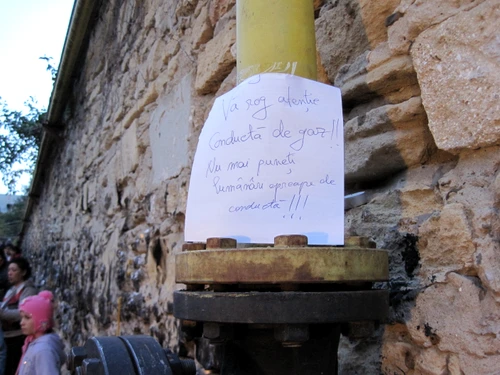 Va rog atenție
Conductă de gaz!!
Nu mai puneți
lumânări aproape de
conductă!!!